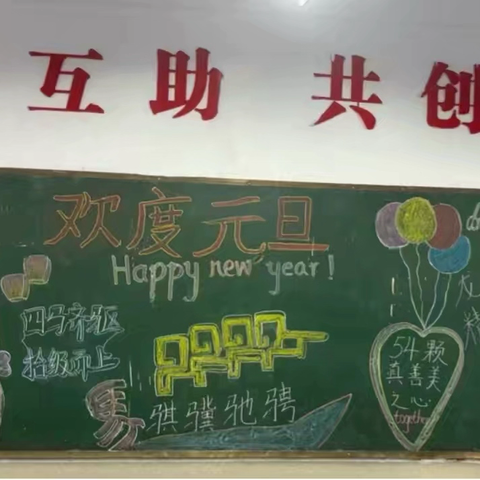 互助 共创
欢度元旦
Happy new year!
四马齐驱
拾级而上
骐骥驰骋
54颗
真善美
之心
together